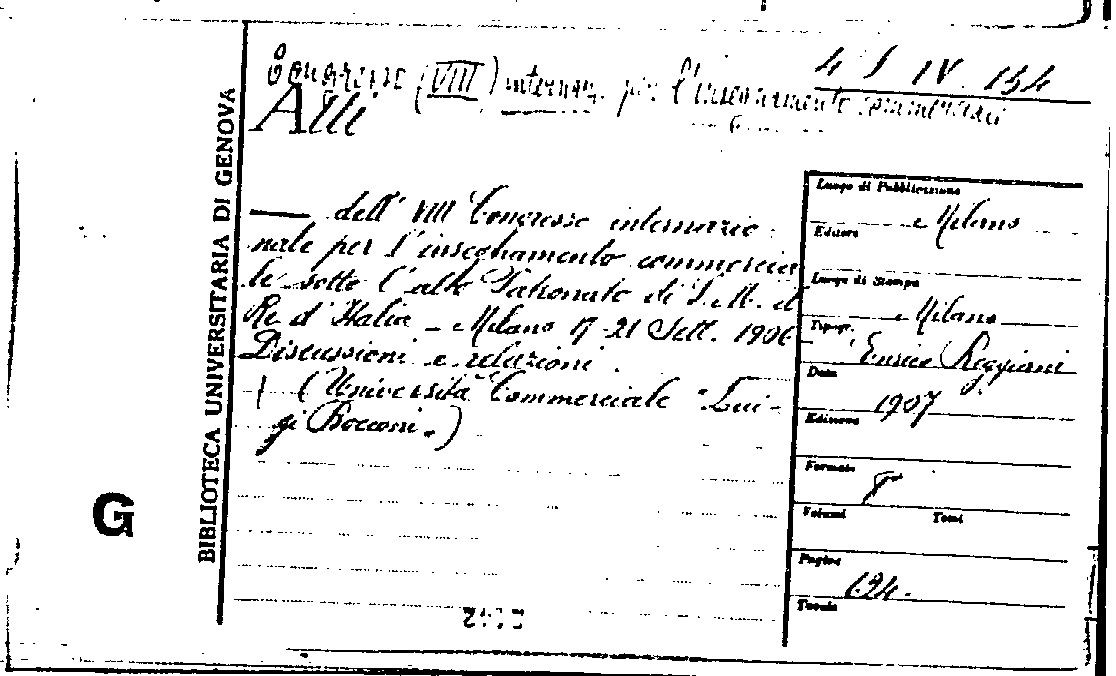 4 S IV 134
Congresso (VIII) internaz. per l'insegnamento commerciale
Atti
BIBLIOTECA UNIVERSITARIA DI GENOVA
—— dell' VIII Congresso internazio-
nale per l'insegnamento commercia
le sotto l'alto Patronato di S. M. il
Re d'Italia - Milano 17-21 Sett. 1906
Discussioni e relazioni.
(Università Commerciale "Lui-
gi Bocconi.)
G
Luogo di Pubblicazione
Milano
Editore
Luogo di Stampa
Milano
Tipogr.
Enrico Reggiani
Data
1907
Edizione
Formato
8°
Volumi Tomi
Pagine
134.
Tavole